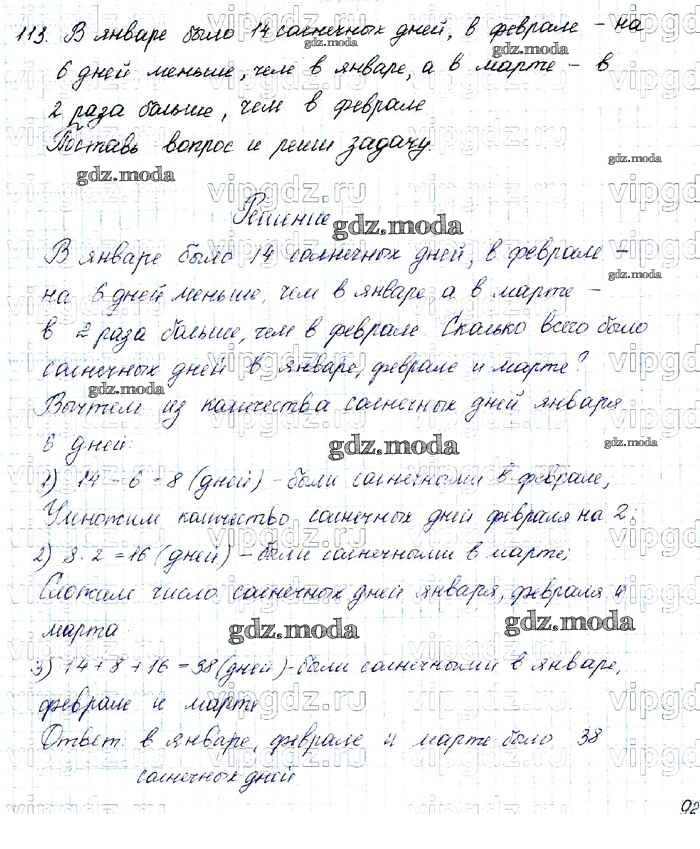 113. В январе было 14 солнечных дней, в феврале - на
6 дней меньше, чем в январе, а в марте - в
2 раза больше, чем в феврале
Поставь вопрос и реши задачу.
Решение
В январе было 14 солнечных дней, в феврале -
на 6 дней меньше, чем в январе, а в марте -
в 2 раза больше, чем в феврале. Сколько всего было
солнечных дней в январе, феврале и марте?
Вычтем из количества солнечных дней января
6 дней:
1) 14 - 6 = 8 (дней) - были солнечными в феврале,
Умножим количество солнечных дней февраля на 2:
2) 8 · 2 = 16 (дней) - были солнечными в марте;
Сложим число солнечных дней января, февраля и
марта
3) 14 + 8 + 16 = 38 (дней) - были солнечными в январе,
феврале и марте
Ответ: в январе, феврале и марте было 38
солнечных дней
92
gdz.moda
vipgdz.ru